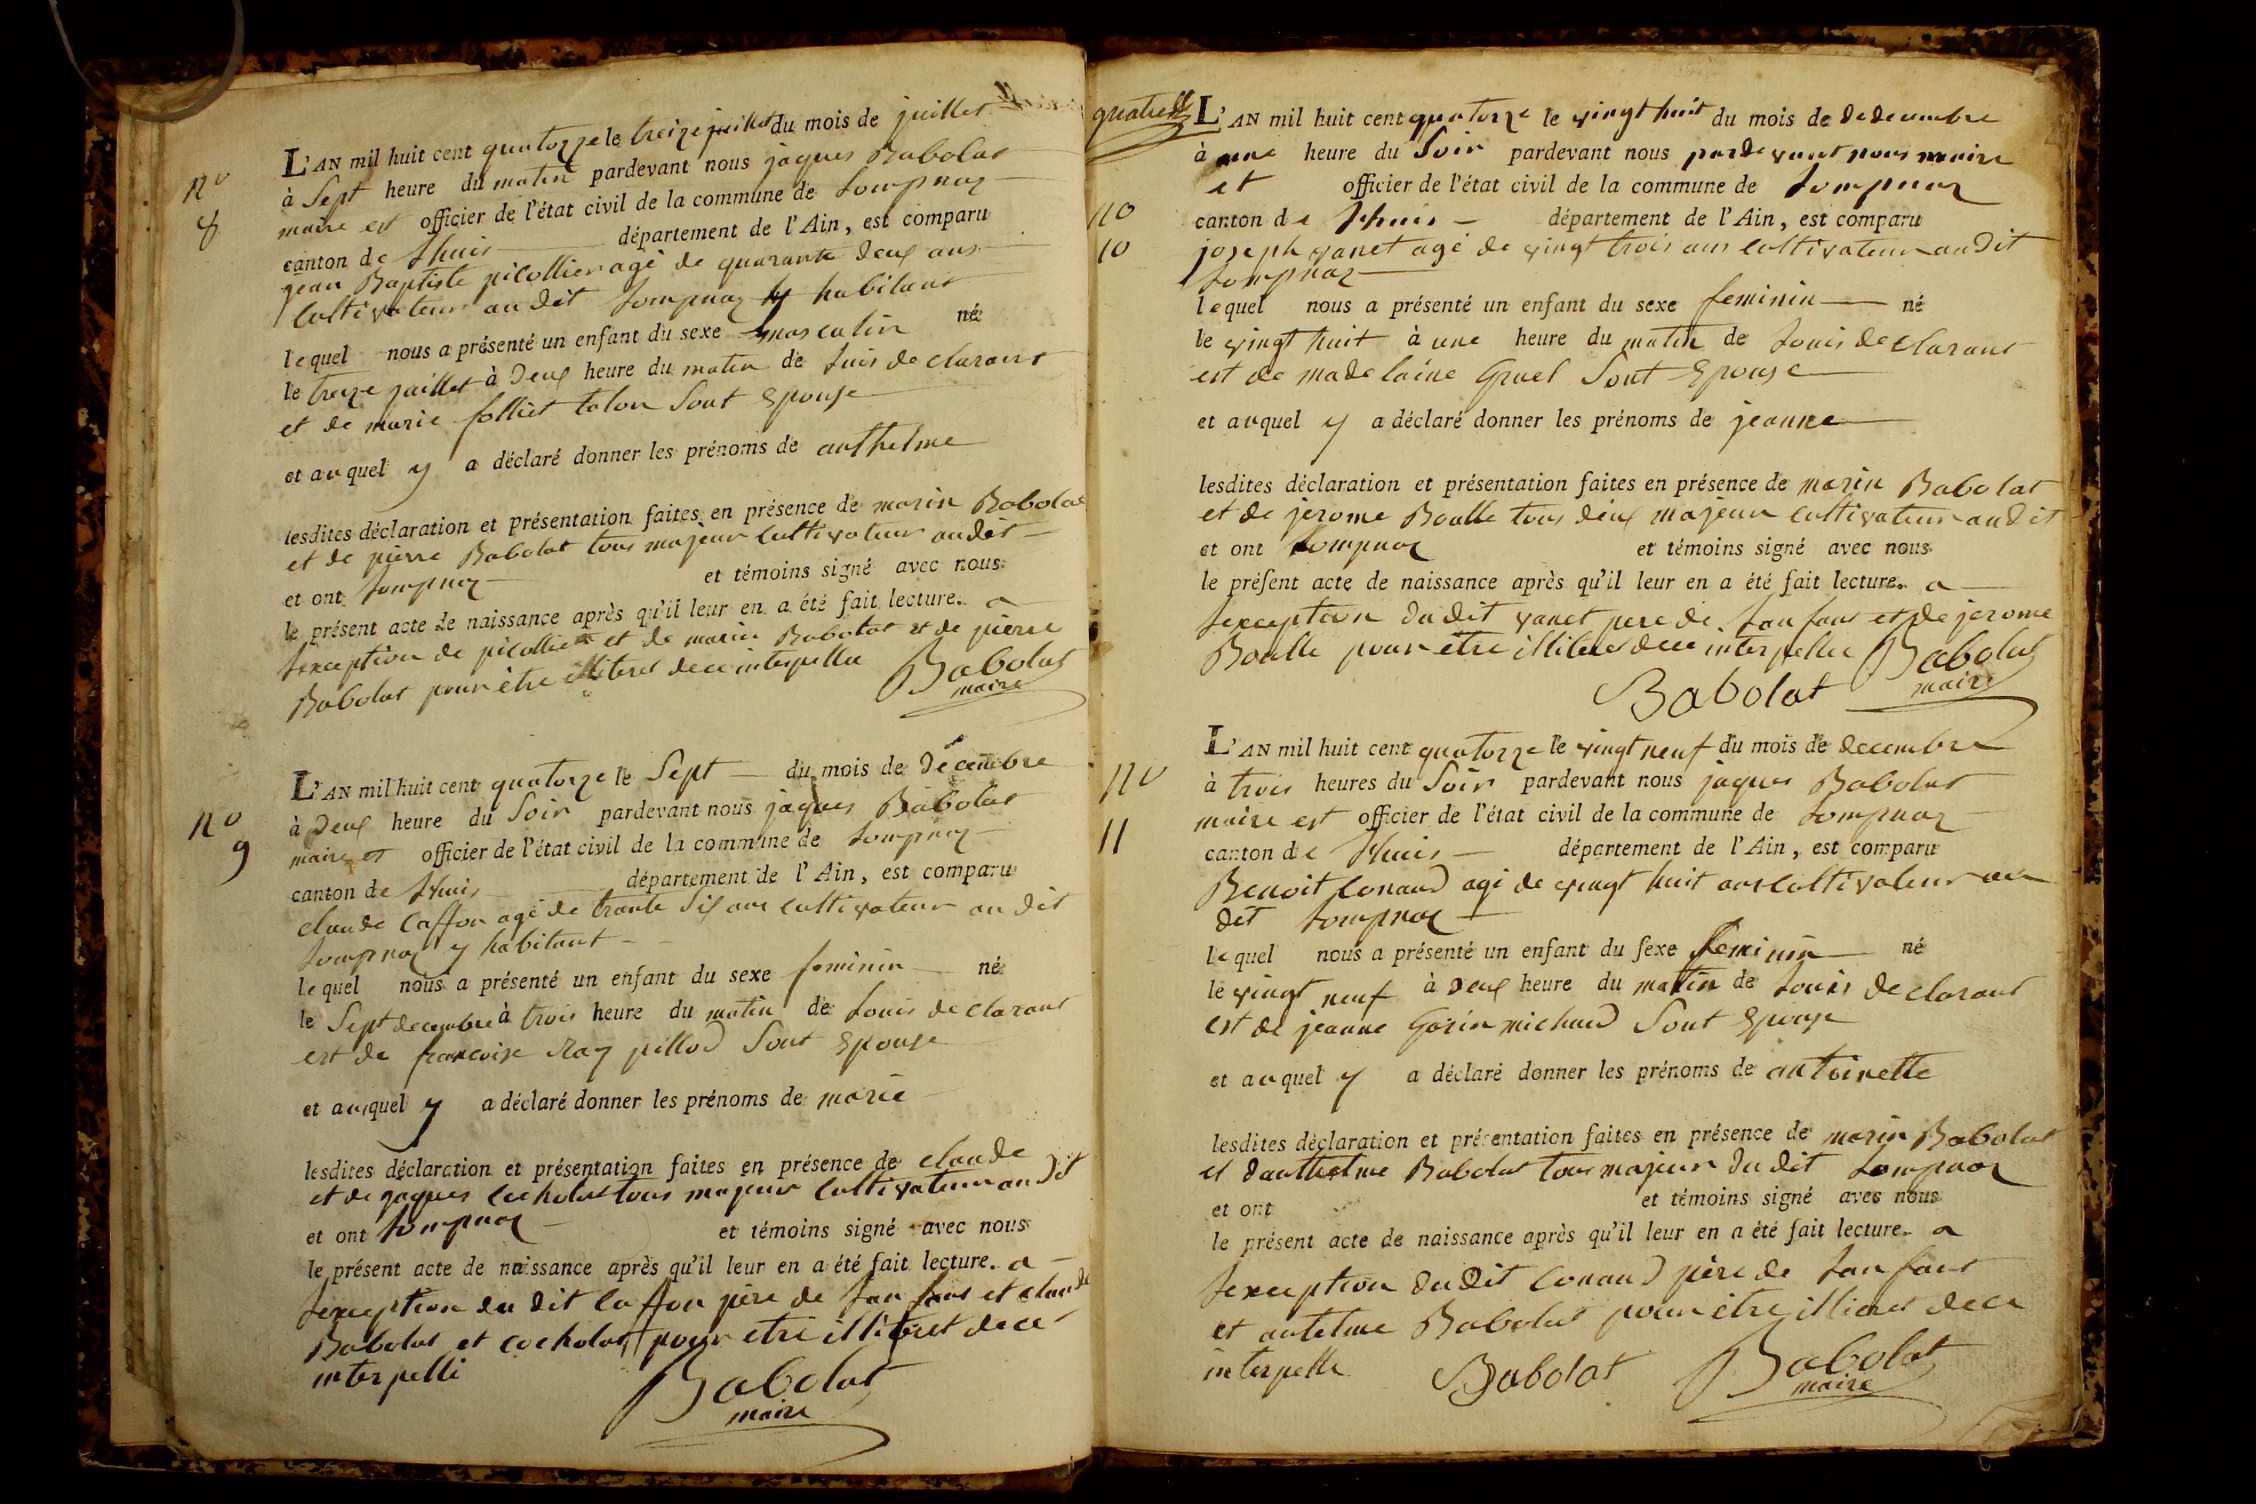 L'AN mil huit cent quatorze le treize juillet du mois de juillet
à Sept heure du matin pardevant nous jaques Babolat
maire et officier de l'état civil de la commune de Lompnaz
canton de Lhuis département de l'Ain, est comparu
jean Baptiste picollier agé de quarante deux ans
Cultivateur audit Lompnaz y habitant
lequel nous a présenté un enfant du sexe masculin né
le treize juillet à deux heure du matin de Luis declarant
et de marie folliet talon Sont Epouse
et auquel y a déclaré donner les prénoms de anthelme
lesdites déclaration et présentation faites en présence de marin Babolat
et de pierre Babolat tous majeur Cultivateur audit
et ont Lompnaz et témoins signé avec nous
le présent acte de naissance après qu'il leur en a été fait lecture. a
Lexception de picollier et de marin Babolat et de pierre
Babolat pour être illiteret dece interpellee
Babolat
maire
n°
8
L'AN mil huit cent quatorze le Sept du mois de décembre
à Deux heure du Soir pardevant nous jaques Babolat
maire et officier de l'état civil de la commune de Lompnaz
canton de Lhuis département de l'Ain, est comparu
claude Caffon agé de trante Six ans cultivateur audit
Lompnaz y habitant
lequel nous a présenté un enfant du sexe feminin né
le Sept decembre à trois heure du matin de Louis declarant
est de francoise Ray pillod Sont Epouse
et auquel y a déclaré donner les prénoms de marie
lesdites déclaration et présentation faites en présence de claude
et de jaques Cocholat tous majeur Cultivateur audit
et ont Lompnaz et témoins signé avec nous
le présent acte de naissance après qu'il leur en a été fait lecture. a
Lexception du dit Caffon père de Lanfant et claude
Babolat et cocholat pour etre illiteret dece
interpelli
Babolat
maire
n°
9
quatre
L'AN mil huit cent quatorze le vingt huit du mois de dedecembre
à une heure du Soir pardevant nous pardevant nous maire
et officier de l'état civil de la commune de Lompnaz
canton de Lhuis département de l'Ain, est comparu
joseph vanet agé de vingt trois ans Cultivateur audit
Lompnaz
lequel nous a présenté un enfant du sexe feminin né
le vingt huit à une heure du matin de Louis declarant
est de madelaine Gruel Sont Epouse
et auquel y a déclaré donner les prénoms de jeanne
lesdites déclaration et présentation faites en présence de marin Babolat
et de jerome Boulle tous deux majeur cultivateur audit
et ont Lompnaz et témoins signé avec nous
le présent acte de naissance après qu'il leur en a été fait lecture. a
Lexception dudit vanet pere de Lanfant et de jerome
Boulle pour etre illiteret dece interpellee
Babolat
Babolat
maire
no
10
L'AN mil huit cent quatorze le vingt neuf du mois de decembre
à trois heures du Soir pardevant nous jaques Babolat
maire est officier de l'état civil de la commune de Lompnaz
canton de Lhuis département de l'Ain, est comparu
Benoit Conand agé de vingt huit ans Cultivateur au
dit Lompnaz
lequel nous a présenté un enfant du sexe feminin né
le vingt neuf à deux heure du matin de Louis declarant
est de jeanne Gorin michaud Sont Epouse
et auquel y a déclaré donner les prénoms de antoinette
lesdites déclaration et présentation faites en présence de marin Babolat
et danthelme Babolat tous majeur dudit Lompnaz
et ont et témoins signé avec nous
le présent acte de naissance après qu'il leur en a été fait lecture. a
Lexception dudit Conand père de Lanfant
et antelme Babolat pour être illieret dece
interpelle
Babolat
Babolat
maire
no
11